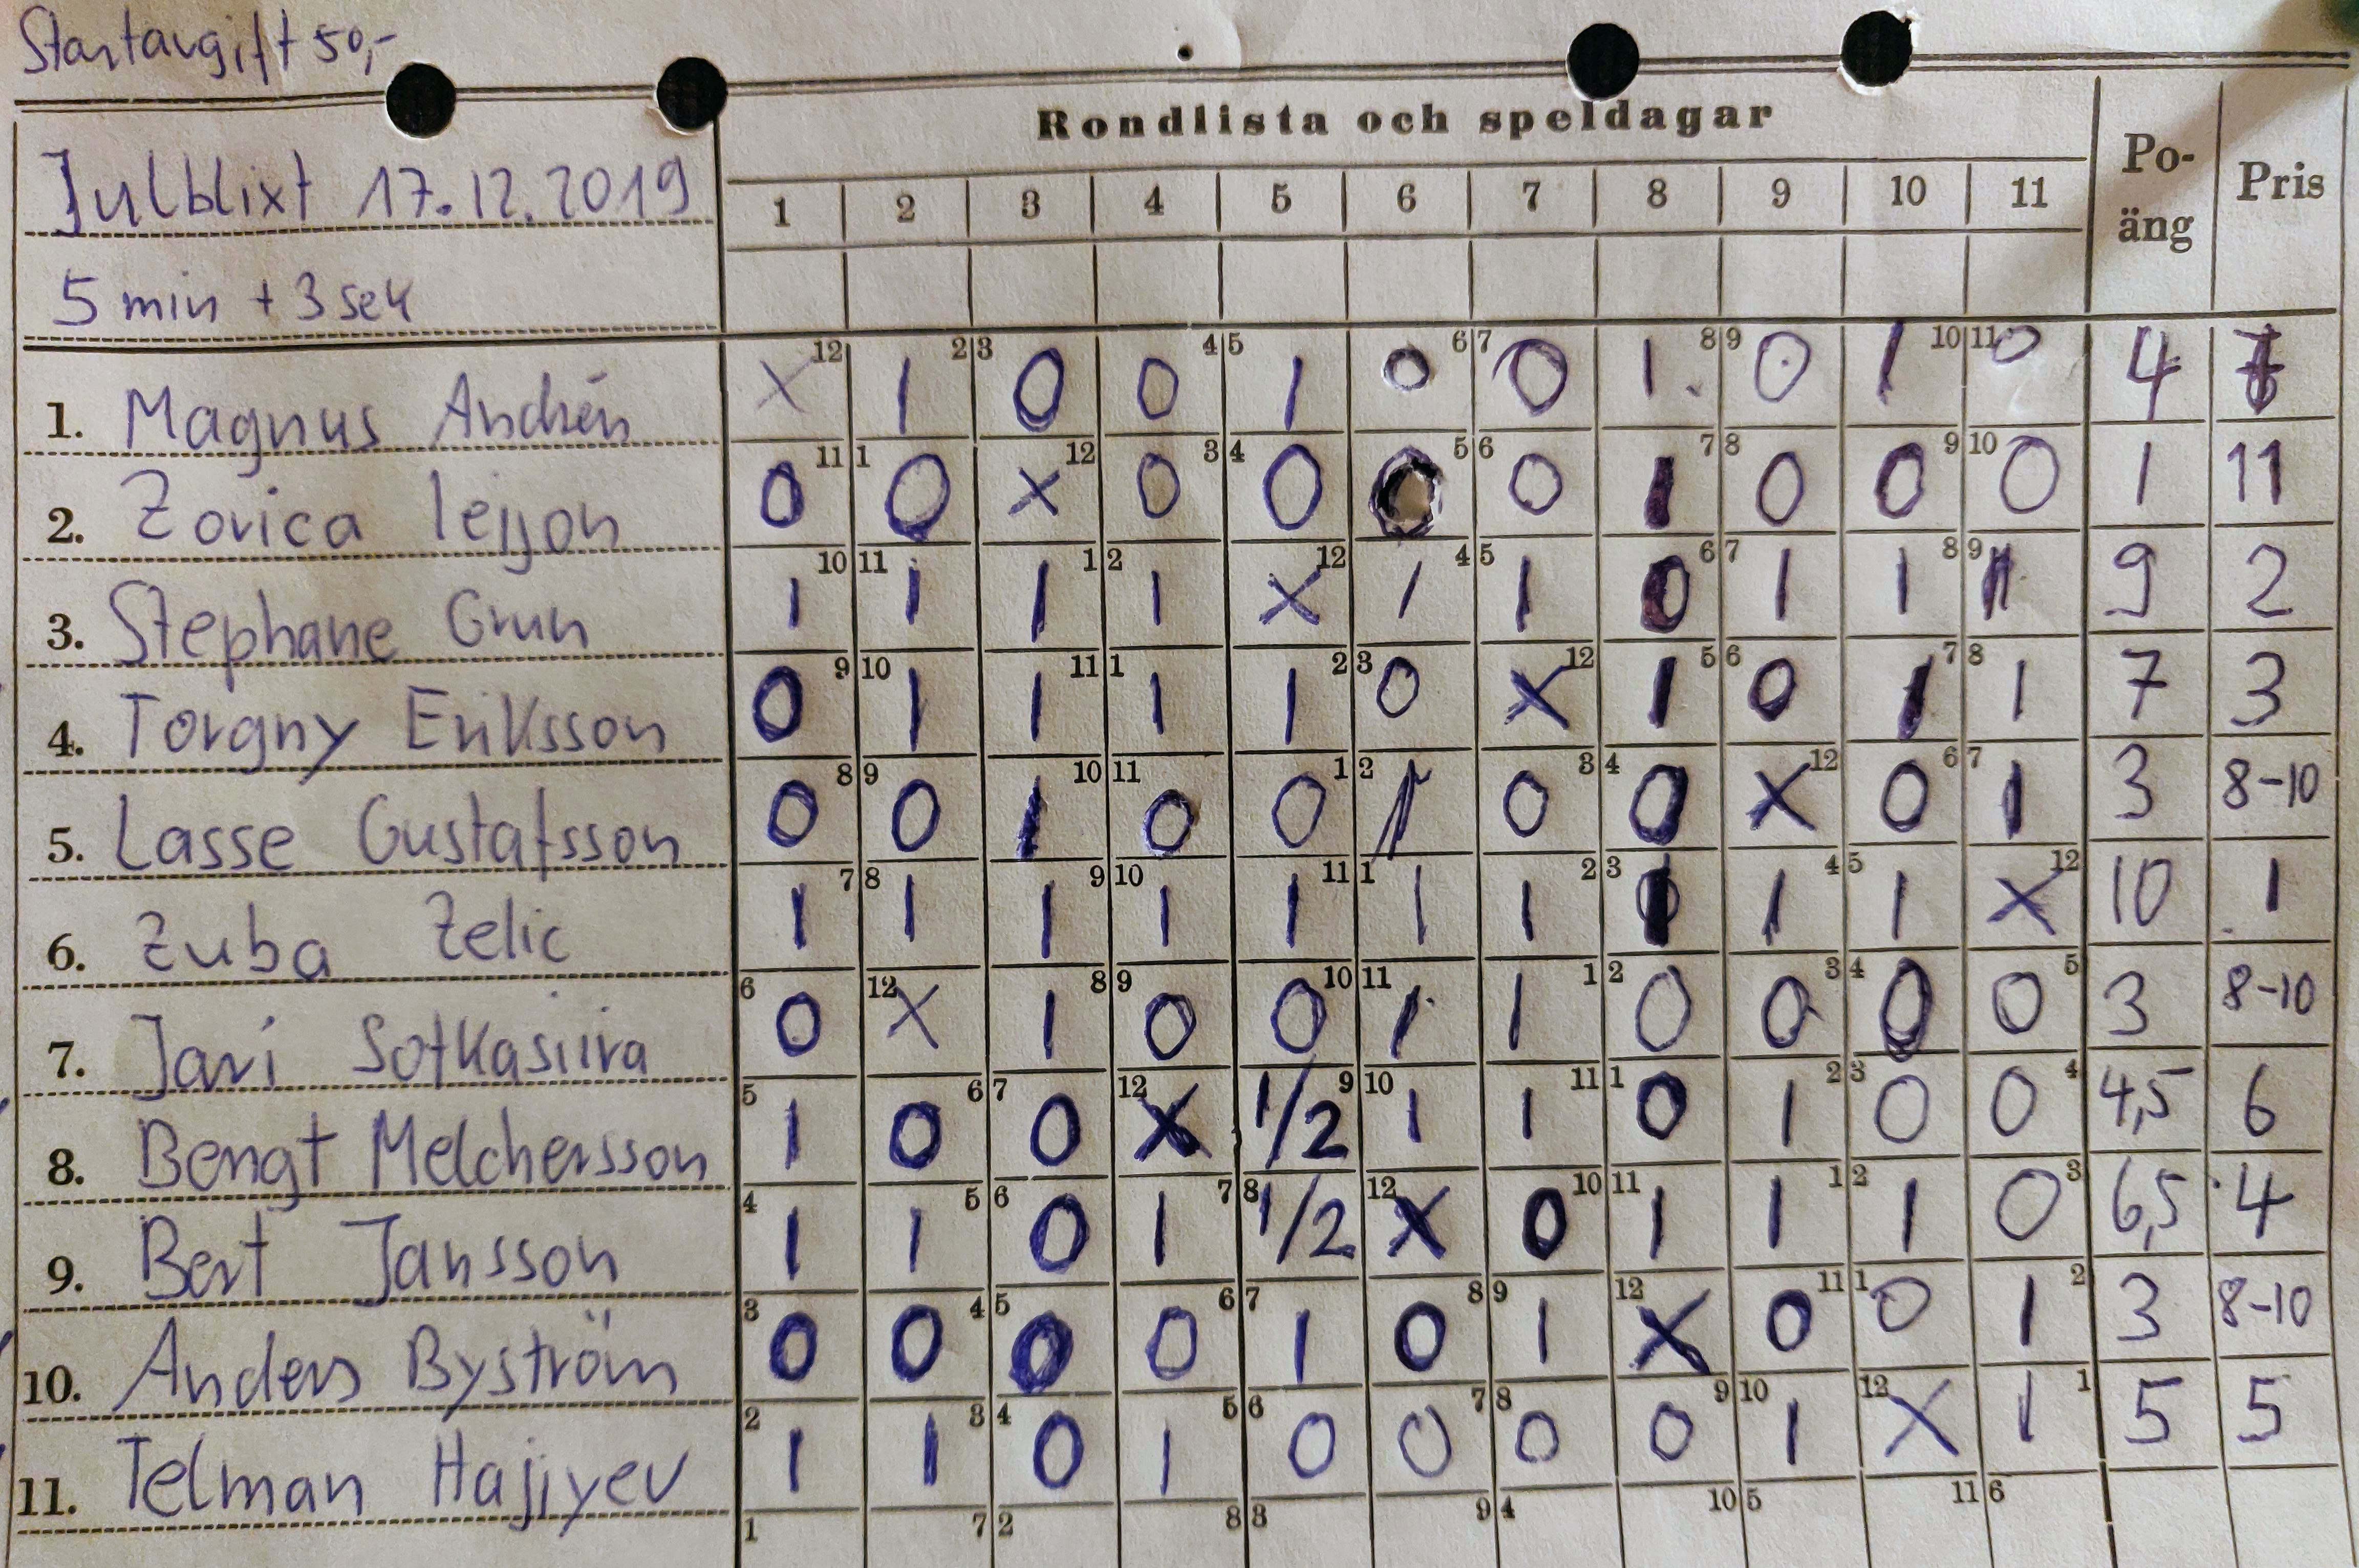 Startavgift 50,-
Rondlista och speldagar
Po-
äng
Pris
Julblixt 17.12.2019
1 2 3 4 5 6 7 8 9 10 11
5 min + 3 sek
12 2 3 4 5 6 7 8 9 10 11
1. Magnus Andrén X 1 0 0 1 0 0 1 0 1 0 4 7
11 1 12 3 4 5 6 7 8 9 10
2. Zorica 0 0 X 0 0 0 0 1 0 0 0 1 11
10 11 1 2 12 4 5 6 7 8 9
3. Stephane Grun 1 1 1 1 X 1 1 0 1 1 1 9 2
9 10 11 1 2 3 12 5 6 7 8
4. Torgny Eriksson 0 1 1 1 1 0 X 1 0 1 1 7 3
8 9 10 11 1 2 3 4 12 6 7
5. Lasse Gustafsson 0 0 1 0 0 1 0 0 X 0 1 3 8-10
7 8 9 10 11 1 2 3 4 5 12
6. Zuba Zelic 1 1 1 1 1 1 1 1 1 1 X 10 1
6 12 8 9 10 11 1 2 3 4 5
7. Jari Sotkasiira 0 X 1 0 0 1 1 0 0 0 0 3 8-10
5 6 7 12 9 10 11 1 2 3 4
8. Bengt Melchersson 1 0 0 X 1/2 1 1 0 1 0 0 4,5 6
4 5 6 7 8 12 10 11 1 2 3
9. Bert Jansson 1 1 0 1 1/2 X 0 1 1 1 0 6,5 4
3 4 5 6 7 8 9 12 11 1 2
10. Anders Byström 0 0 0 0 1 0 1 X 0 0 1 3 8-10
2 3 4 5 6 7 8 9 10 12 1
11. Telman Hajiyev 1 1 0 1 0 0 0 0 1 X 1 5 5
1 7 2 8 3 9 4 10 5 11 6